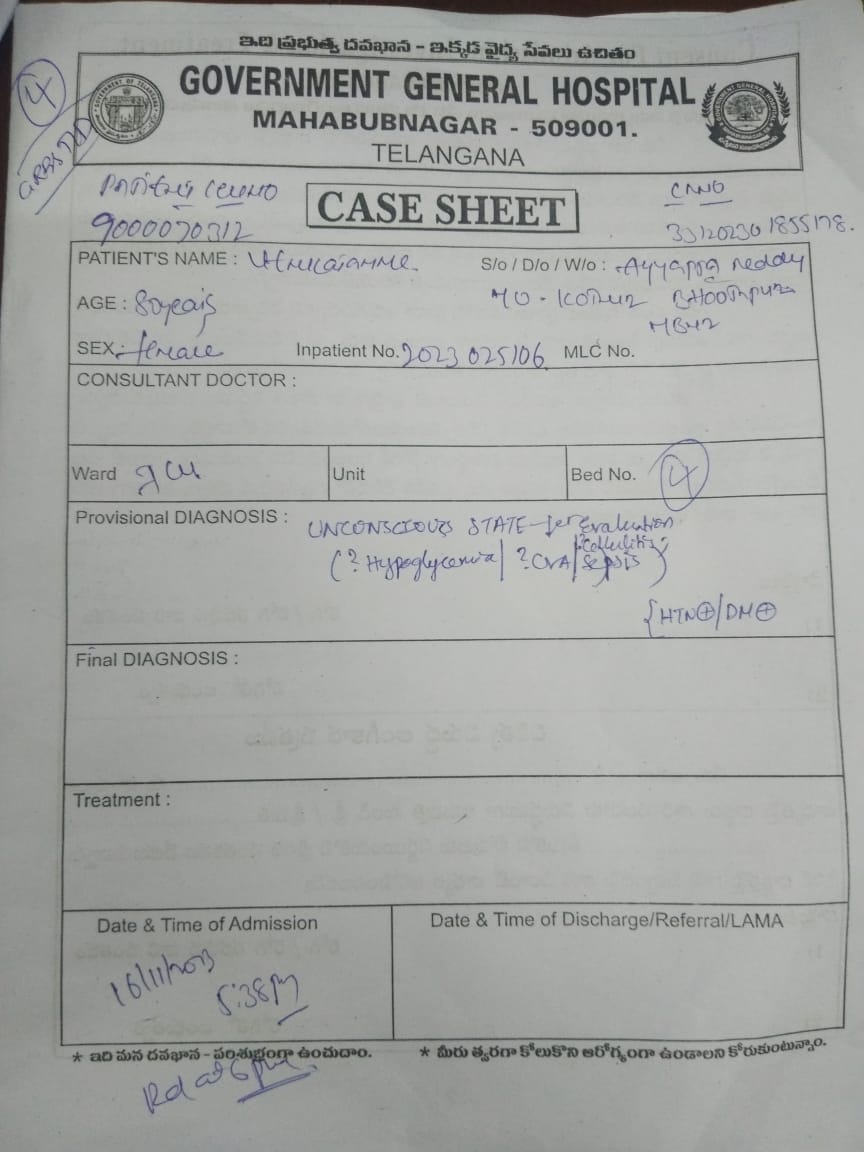 ఇది ప్రభుత్వ దవఖాన - ఇక్కడ వైద్య సేవలు ఉచితం
4
GOVERNMENT GENERAL HOSPITAL
MAHABUBNAGAR - 509001.
TELANGANA
GRBS
CASE SHEET
9000070312
PATIENT'S NAME :
S/o / D/o / W/o : Ayyappa reddy
AGE : 80years
SEX : female
Inpatient No. 2023 025106 MLC No.
CONSULTANT DOCTOR :
Ward
Unit
Bed No. 4
Provisional DIAGNOSIS : UNCONSCIOUS STATE - for Evaluation
(? Hypoglycemia / ? CVA / sepsis
? cellulitis
{HTN⊕/DM⊕
Final DIAGNOSIS :
Treatment :
Date & Time of Admission
Date & Time of Discharge/Referral/LAMA
5:38PM
* ఇది మన దవఖాన - పరిశుభ్రంగా ఉంచుదాం.
* మీరు త్వరగా కోలుకొని ఆరోగ్యంగా ఉండాలని కోరుకుంటున్నాం.
Rd at 6pm